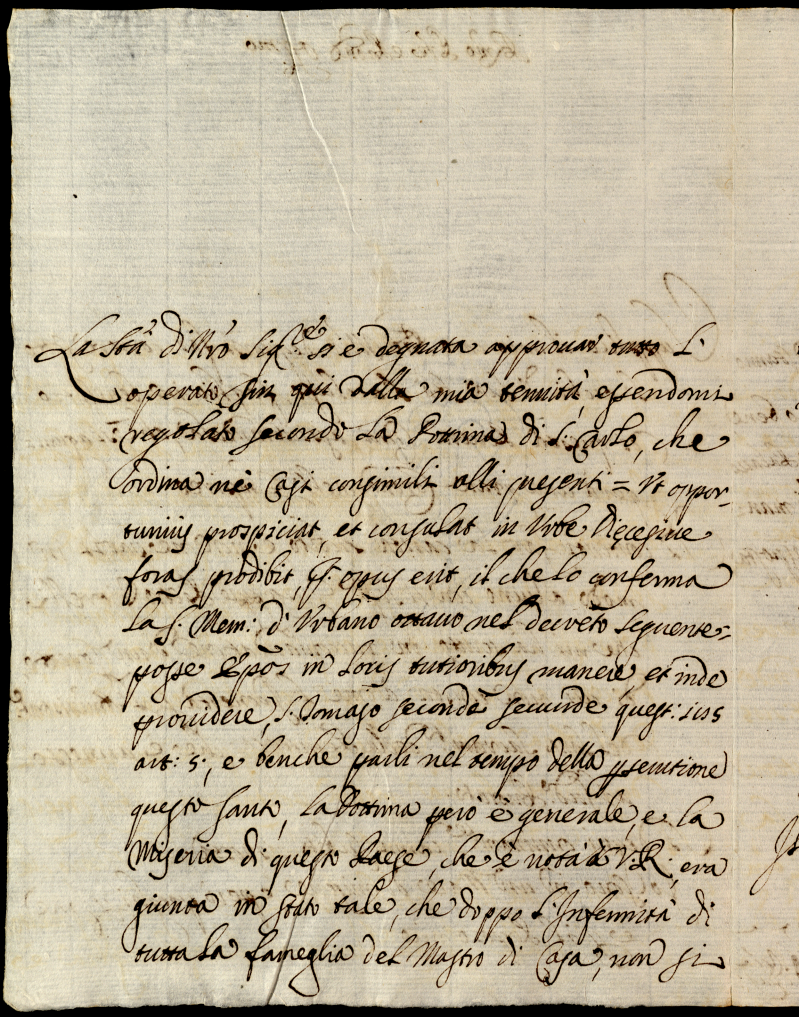 La Stà di Nrõ Sigre si è degnata approuar tutto l'
operato sin quì dalla mia tenuità, essendomi
regolato secondo la Dottrina di S. Carlo, che
ordina nè Casi consimili alli presenti = Ut oppor-
tunius prospiciat, et consulat in Urbe
foras prodibit, opus erit, il che lo conferma
la S. Mem: d' Urbano ottauo nel decreto seguente=
posse Epõs in locis tutioribus manere, et inde
prouidere, S. Tomaso seconda secunde quest: 185
art: 5:, e benche parli nel tempo della psecutione
questo Santo, la Dottrina però è generale, e la
Miseria di questo Paese, che è nota à V.R. era
giunta in stato tale, che doppo l'Infermità di
tutta la fameglia del Mastro di Casa, non si